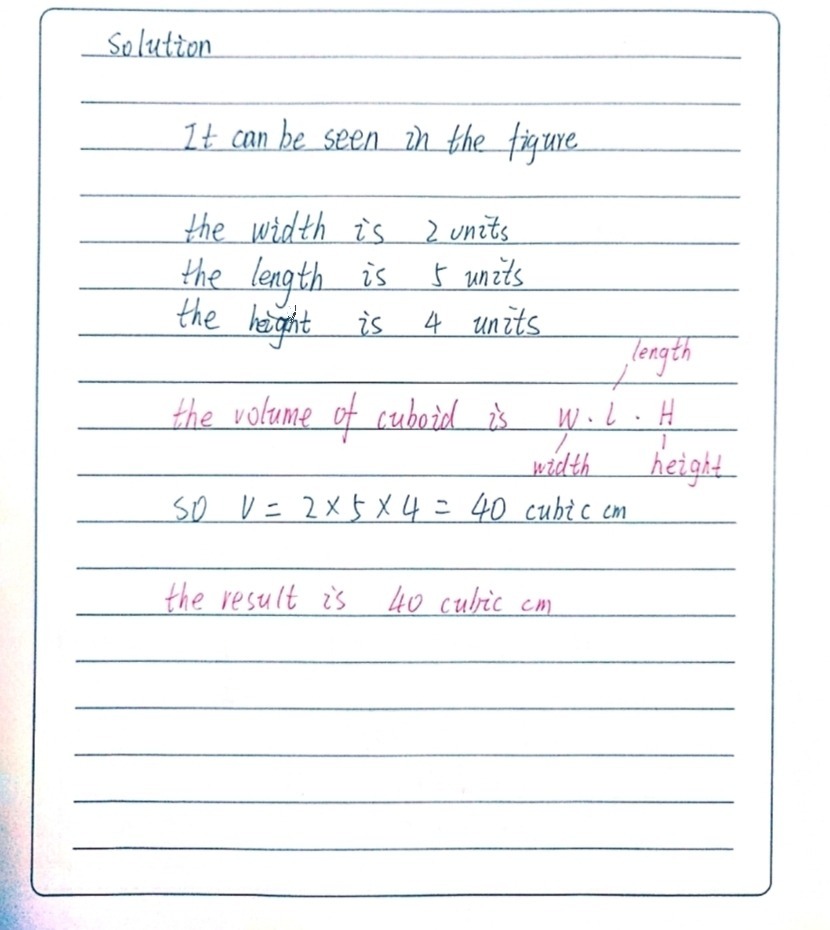 Solution
It can be seen in the figure
the width is 2 units
the length is 5 units
the height is 4 units
length
the volume of cuboid is W · L · H
width height
so V = 2 × 5 × 4 = 40 cubic cm
the result is 40 cubic cm